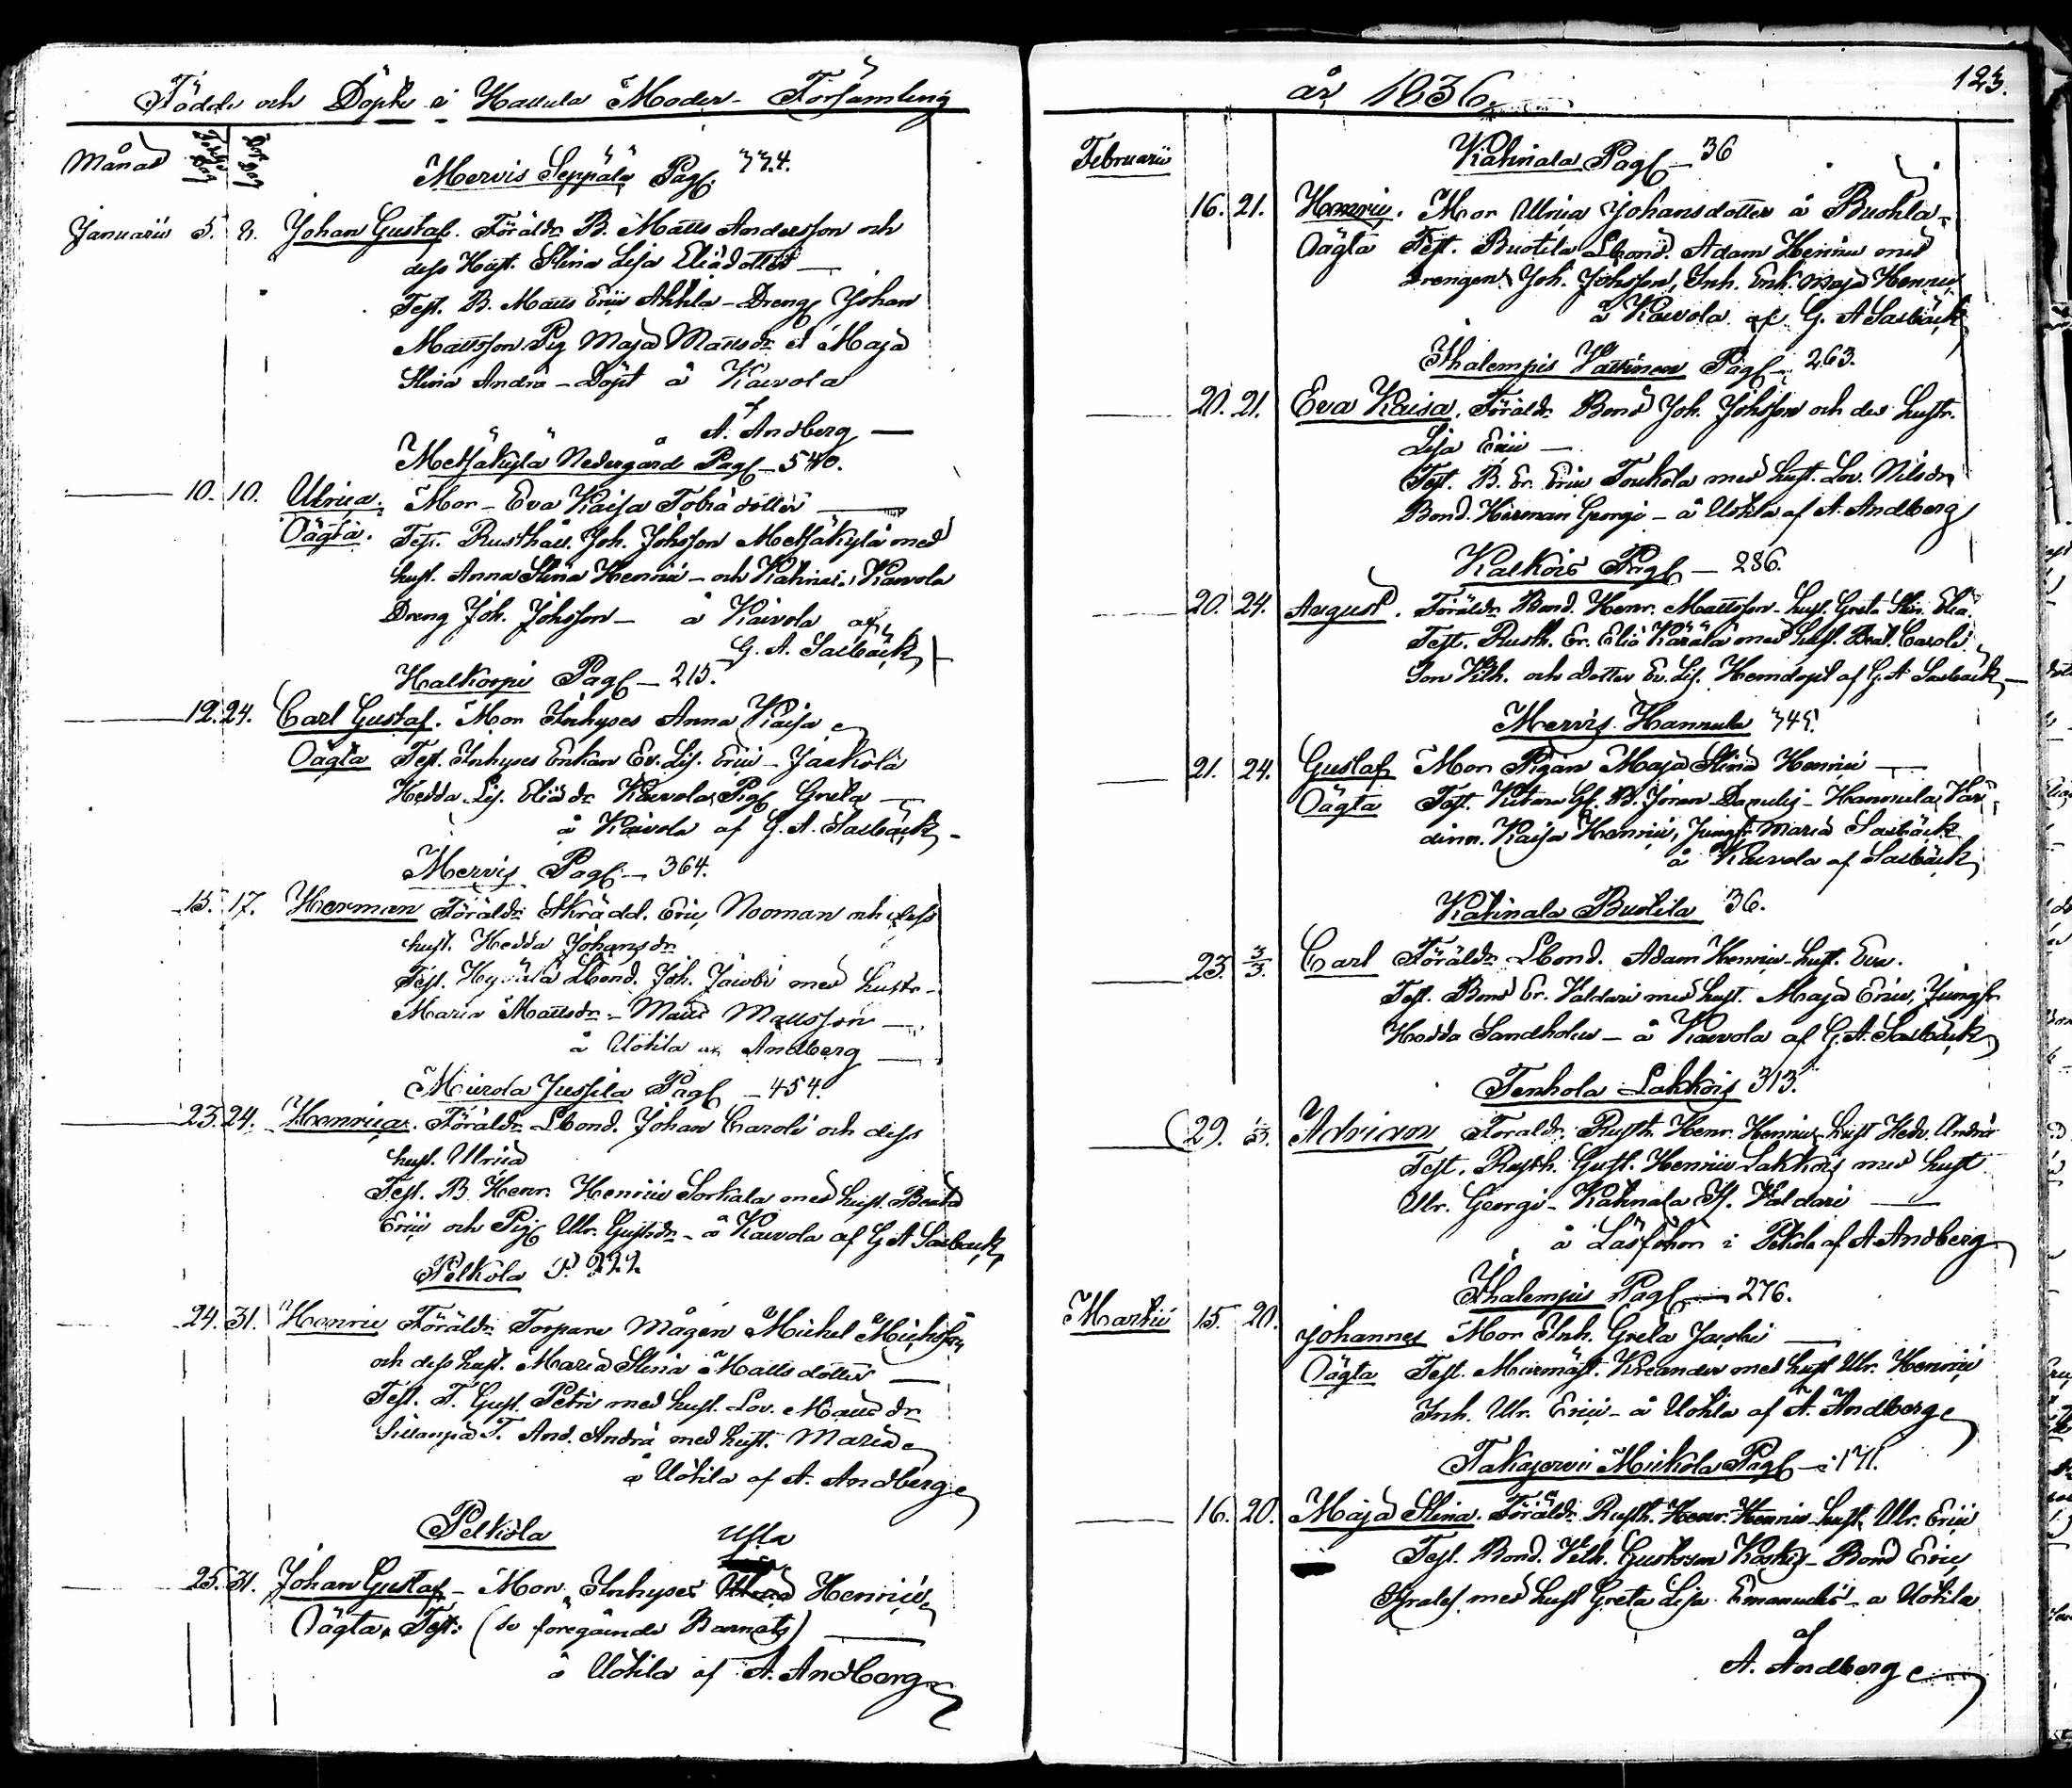 Födde och Döpte i Hattula Moder-Församling
Månad Födelse Dag Döp. Dag
Mervis Seppälä Pag. 334.
Januarii 5. 8. Johan Gustaf. Föräldr. B. Matts Andersson och
dess Hust. Stina Lisa Eliädotter —
Test. B. Matts Erici Ahlila - Dreng Johan
Mattsson Pig Maja Mattsdr. et Maja
Stina Andrä - Döpt å Kaivola
af
A. Andberg —
Metsäkylä Nedergård Pag. - 540.
— 10. 10. Ulrica. Mor - Eva Kaisa Tobiä dotter —
Oägta. Test. Rusthåll. Joh. Johsson Metsäkylä med
hust. Anna Stina Henrici - och Katinala Kaivola
Dreng Joh. Johsson - å Kaivola af
G. A. Sacklöck
Halkorpi Pag. - 215.
— 12. 24. Carl Gustaf. Mor Inhyses Anna Kaisa
Oägta Test. Inhyses Enkan Ev. Lis. Erici - Jaakola
Hedda Lis. Eliä dr. Kaivola, Pig. Greta —
å Kaivola af G. A.
Mervis Pag. - 364.
15. 17. Herman Föräldr. Skrädd. Eric Nooman och dess
hust. Hedda Johansdr.
Test. Lbond. Joh. Jacobi med hustr.
Maria Mattsdr. - Matts Mattsson —
å Uotila af Andberg —
Mierola Jussila Pag. - 454.
— 23. 24. Henrica. Föräldr. Lbond. Johan Caroli och dess
hust. Ulrica
Test. B. Henr. Henrici Sorkala med hust. Beata
Erici och Pig. Ulr. Gustsdr. - å Kaivola af G. A.
Pelkola P. 222.
— 24. 31. Henric Föräldr. Torpare Mågen Michel Michelss.
och dess hust. Maria Stina Matts dotter —
Test. T. Gust. Petri med hust. Lov. Matts dr.
Sillanpä T. And. Andrä med hust. Maria
å Uotila af A. Andberg
Pelkola
Ulla
— 25. 31. Johan Gustaf - Mor Inhyses Ulrica Henrici
Oägta. Test: (se föregående Barnets) —
å Uotila af A. Andberg
år 1836. 123.
Februarii Katinala Pag. - 36
16. 21. Henric. Mor Ulrica Johansdotter å Buotila
Oägta Test. Buotila Lbond. Adam Henrici med
Drengen Joh. Johsson, Inh. Enk. Maja Henrici
å Kaivola af G. A.
Ihalempis Vattinen Pag. - 263.
— 20. 21. Eva Kaisa. Föräldr. Bond Joh. Johsson och des hustr.
Lisa Erici —
Test. B. Er. Erici Toukola med hust. Lov. Nilsdr.
Bond. Herman Georgi - å Uotila af A. Andberg
Kalkois Pag. - 286.
— 20. 24. August. Föräldr. Bond. Henr. Mattsson - hust. Greta Stin. Eliä.
Test. Rusth. Er. Eliä Kärälä med hust. Beat. Caroli
Son Vilh. och dotter Ev. Lis. Hemdöpt af G. A. —
Mervis Hannula 345.
— 21. 24. Gustaf Mor Pigan Maja Stina Henrici —
Oägta Test. Gf. B. Jöran Danielis - Hannula Vär-
dinn. Kaisa Henrici, Jungf. Maria
å Kaivola af
Katinala Buotila 36.
— 23. 3/3. Carl Föräldr. Lbond. Adam Henrici - hust. Eva.
Test. Bond Er. Valdari med hust. Maja Erici, Jungfr.
Hedda Sandholm - å Kaivola af G. A.
Tenhola Lakkois 313.
— 29. Adrian Föräldr. Rusth. Henr. Henrici - hust Hedv. Andrä
Test. Rusth. Gust. Henrici Lakkois med hust
Ulr. Georgi - Katinala H. Valdari —
å Läsförhör i Pekola af A. Andberg
Ihalempis Pag. — 276.
Martii 15. 20. Johannes Mor Inh. Greta Jacobi —
Oägta Test. Murmäst. Kreander med hust Ulr. Henrici
Inh. Ulr. Erici - å Uotila af A. Andberg
Takajervi Mickola Pag. - 171.
— 16. 20. Maja Stina. Föräldr. Rusth. Henr. Henrici - hust. Ulr. Erici
Test. Bond. Vilh. Gustsson Koskis - Bond Eric
med hust Greta Lisa Emanuelis - å Uotila
af
A. Andberg